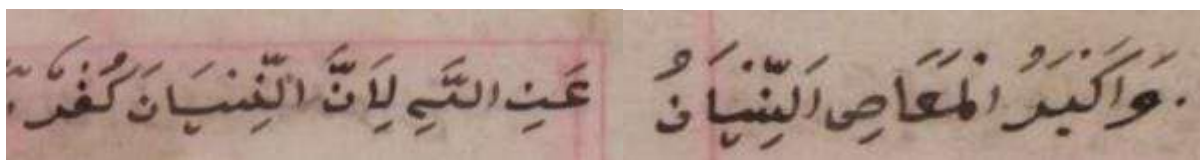 وَاَكْبَرُ الْمَعَاصِى اَلنِّسْيَانُ عَنِ اللَّهِ لِاَنَّ النِّسْيَانَ كُفْرٌ